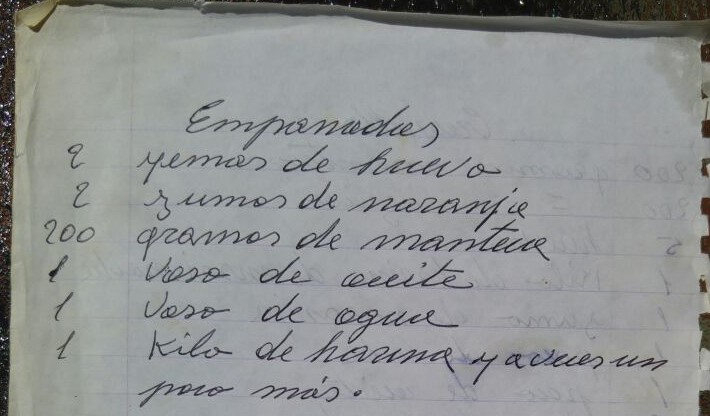 Empanadas
2 yemas de huevo
2 zumos de naranja
200 gramos de manteca
1 vaso de aceite
1 vaso de agua
1 Kilo de harina y a veces un
poco más.